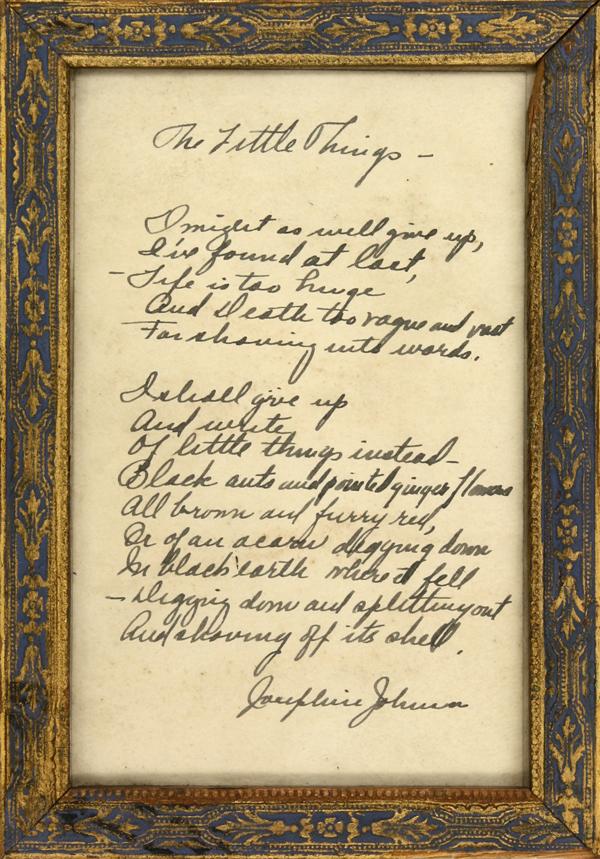 The Little Things –
I might as well give up,
I've found at last,
– Life is too huge
And Death too vague and vast
For shoving into words.
I shall give up
And write
Of little things instead –
Black ants and pointed ginger flowers
All brown and furry red,
Or of an acorn digging down
In black earth where it fell
– Digging down and splitting out
And shoving off its shell.
Josephine Johnson